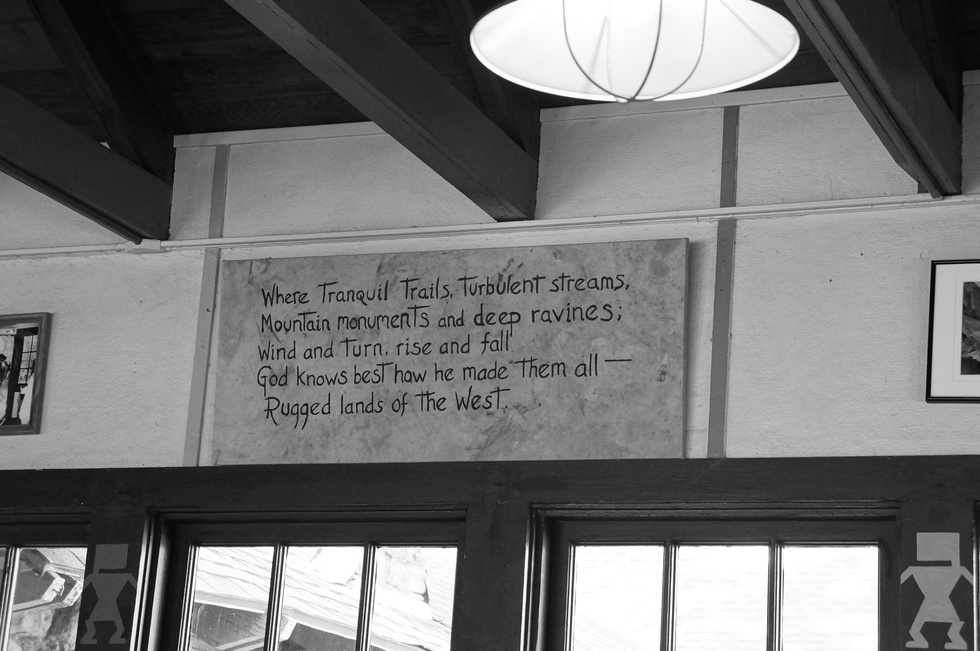 Where Tranquil Trails, Turbulent streams,
Mountain monuments and deep ravines;
Wind and Turn, rise and fall
God knows best how he made Them all —
Rugged lands of The West.